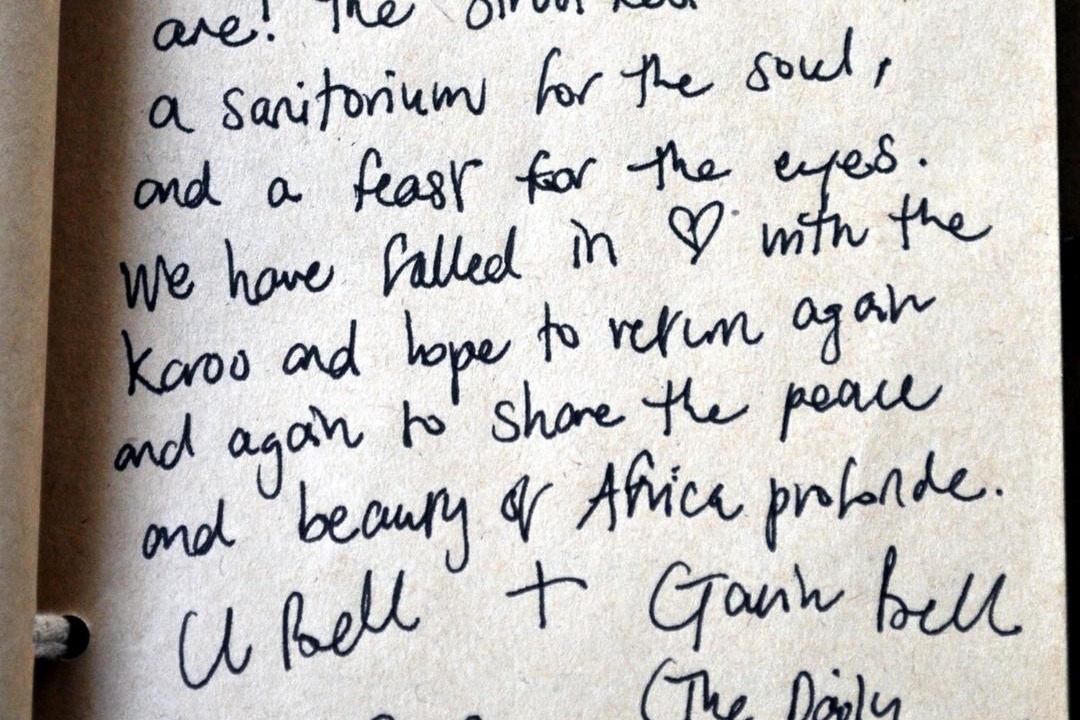 are! The
a sanitorium for the soul,
and a feast for the eyes.
We have falled in ♡ with the
Karoo and hope to return again
and again to share the peace
and beauty of Africa profonde.
Bell + Gavin Bell
(The Daily